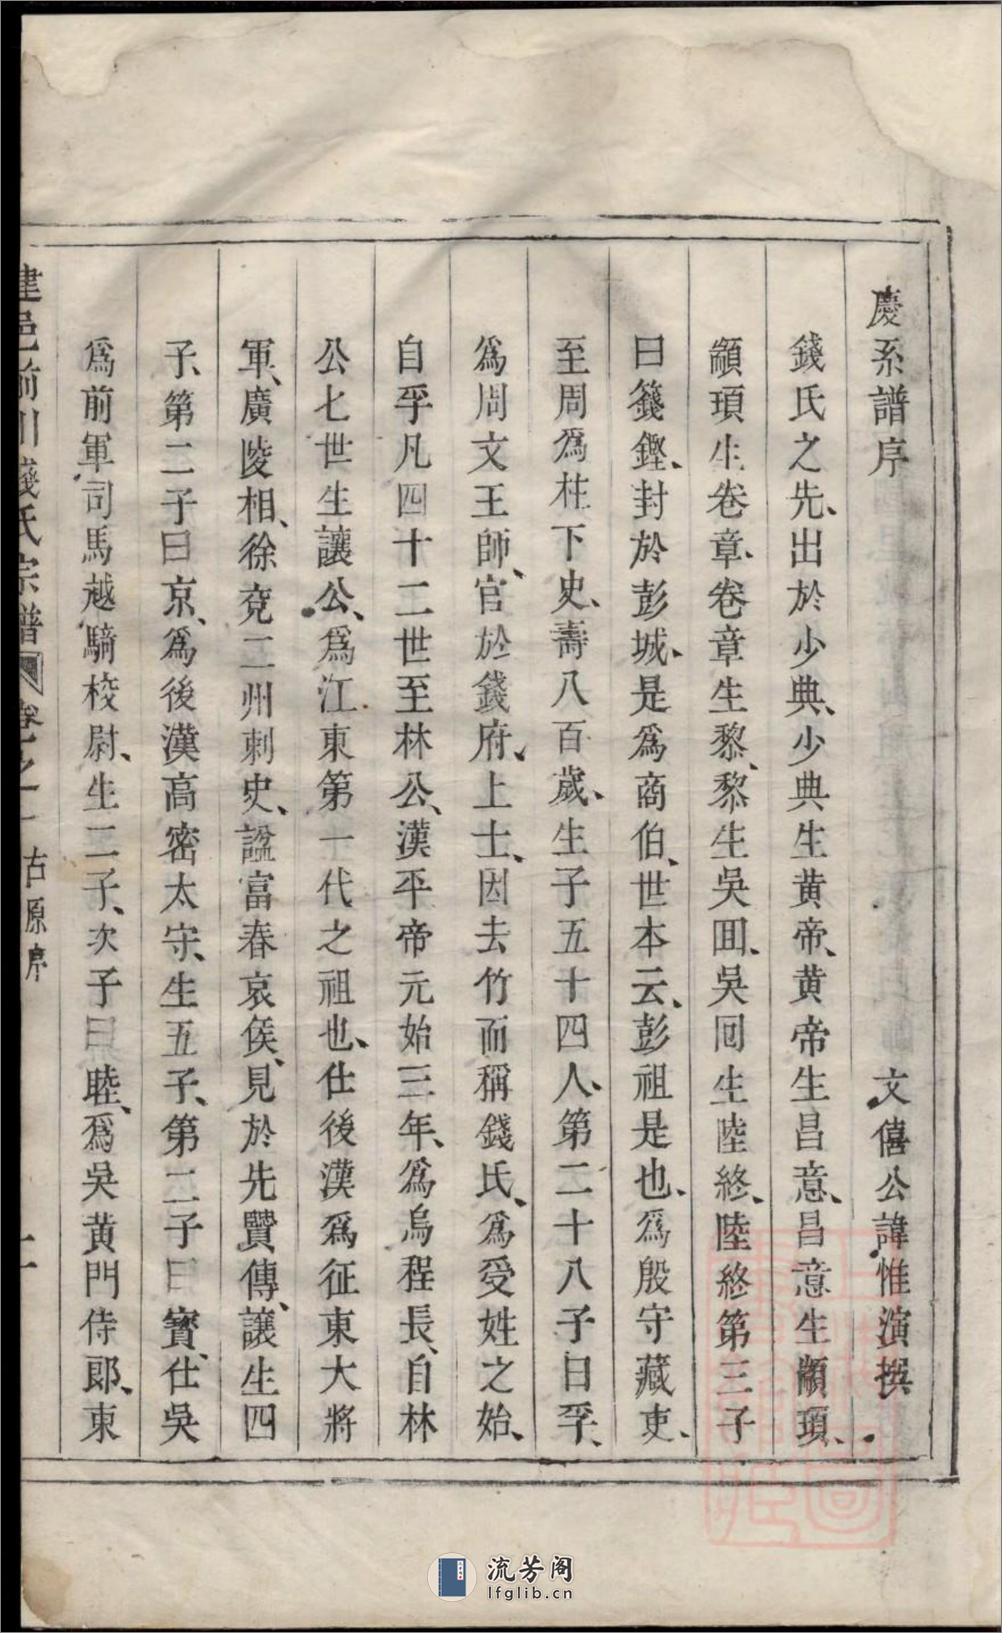 慶系譜序
文僖公諱惟演撰
錢氏之先、出於少典、少典生黃帝、黃帝生昌意、昌意生顓頊、
顓頊生卷章、卷章生黎、黎生吳囬、吳囘生陸終、陸終第三子
曰籛鏗、封於彭城、是爲商伯、世本云、彭祖是也、爲殷守藏吏、
至周爲柱下史、壽八百歲、生子五十四人、第二十八子曰孚、
爲周文王師、官於錢府、上士、因去竹而稱錢氏、爲受姓之始、
自孚凡四十二世至林公、漢平帝元始三年、爲烏程長、自林
公七世生讓公、爲江東第一代之祖也、仕後漢爲征東大將
軍、廣陵相、徐兗二州刺史、諡富春哀侯、見於先賢傳、讓生四
子、第二子曰京、爲後漢高密太守、生五子、第二子曰寳、仕吳
爲前軍司馬越騎校尉、生二子、次子曰睦、爲吳黃門侍郎、東
建邑前川錢氏宗譜 卷之一 古原序
流芳阁
lfglib.cn